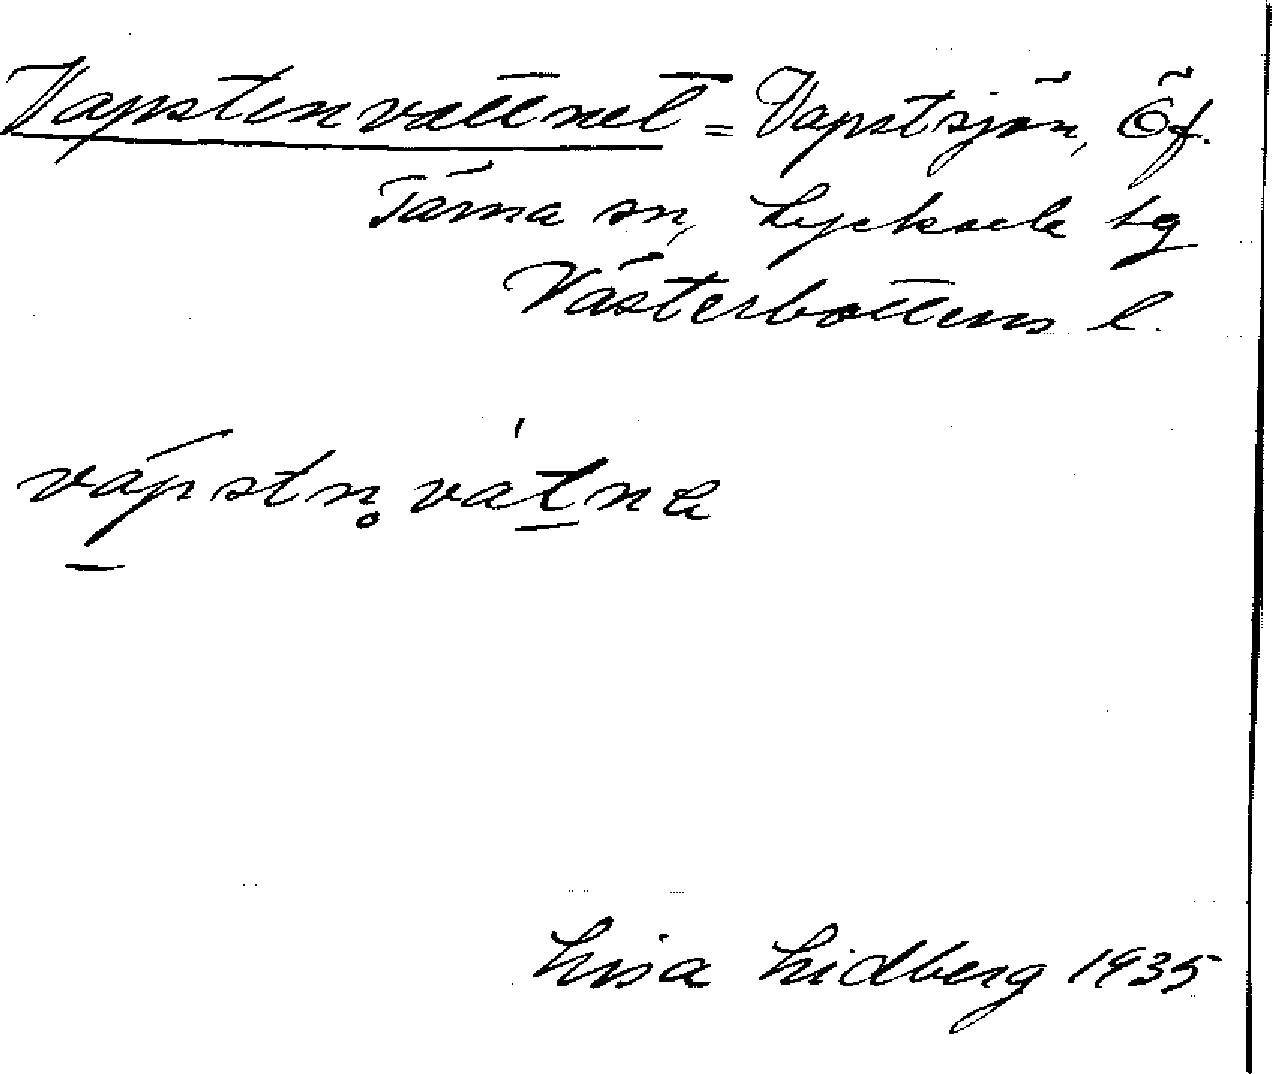 Vapstenvattnet = Vapstsjön, Öf.
Tärna sn, Lycksele lg
Västerbottens l.
vápstn̥ vát̲na
Lisa Lidberg 1935